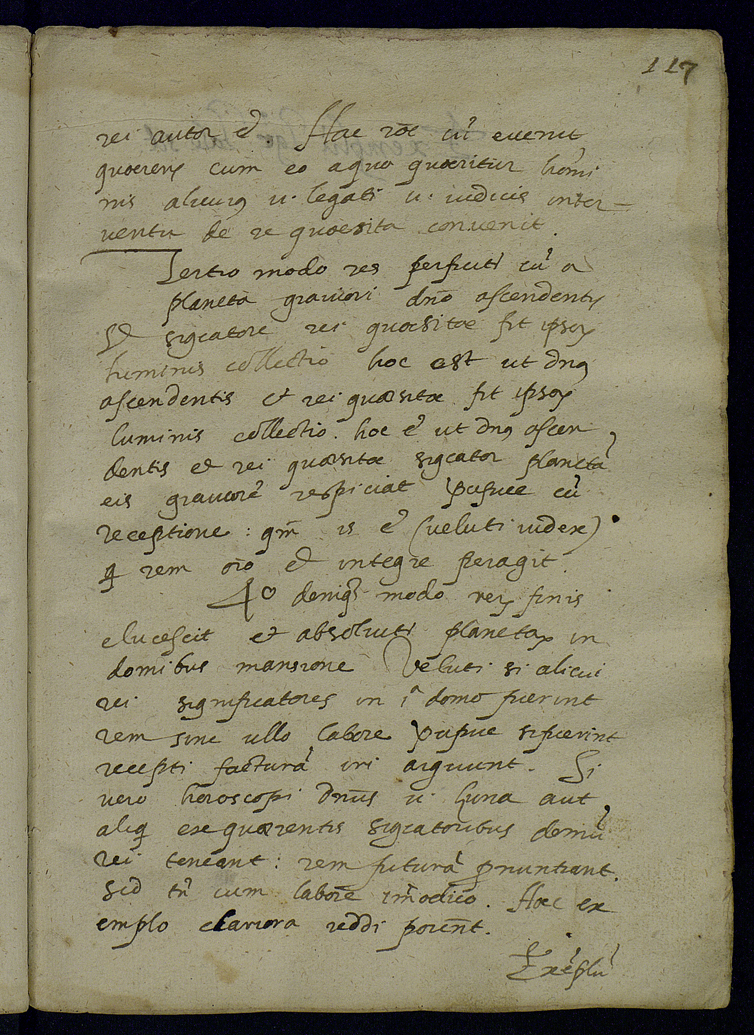 117
rei autor ē. Hac roē cū evenit
quærens cum eo a quo quæritur homi
nis alicuis u. legati u. iudicis inter-
ventu de re quæsita convenit.
Tertio modo res perficiti cū a
planeta graviori dno ascendentis
et sigcatore rei quæsitæ fit ipsor
luminis collectio hoc est ut dns
ascendentis et rei quæsitæ fit ipsor
luminis collectio. hoc ē ut dns ascen
dentis et rei quæsitæ sigcator planetā
eis graviorē respiciat cū
receptione: qm̄ is ē (veluti iudex)
q rem oīo et integre peragit.
4º deniq modo rei finis
elucescit et absoluti planetar in
domibus mansione Veluti si alicui
rei significatores in 1ª domo fuerint
rem sine ullo labore si fuerint
recepti facturā iri arguunt. Si
vero horoscopi dnus u. luna aut
aliq exe quærentis sigcatoribus domū
rei teneant: rem futurā pnuntiant.
sed tn̄ cum laborē im̄odico. Hæc ex
emplo clariora reddi poterit.
Exēplū